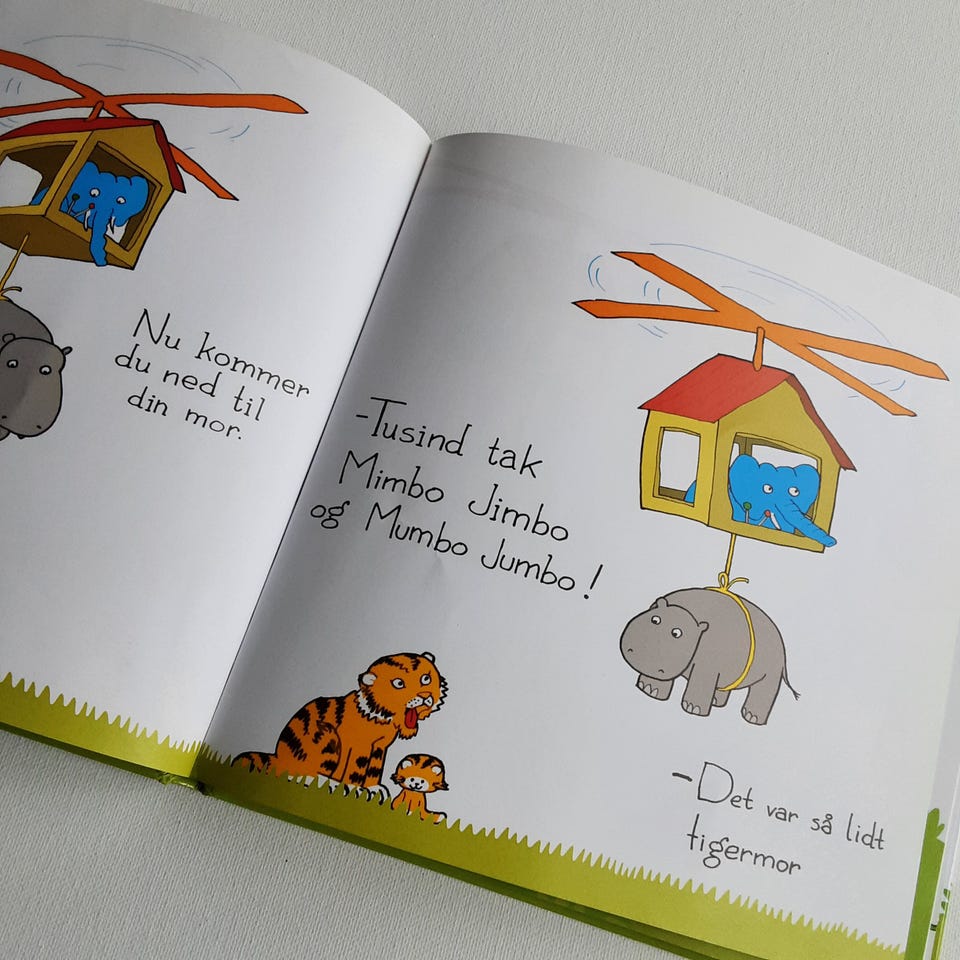 Nu kommer
du ned til
din mor.
-Tusind tak
Mimbo Jimbo
og Mumbo Jumbo!
-Det var så lidt
tigermor